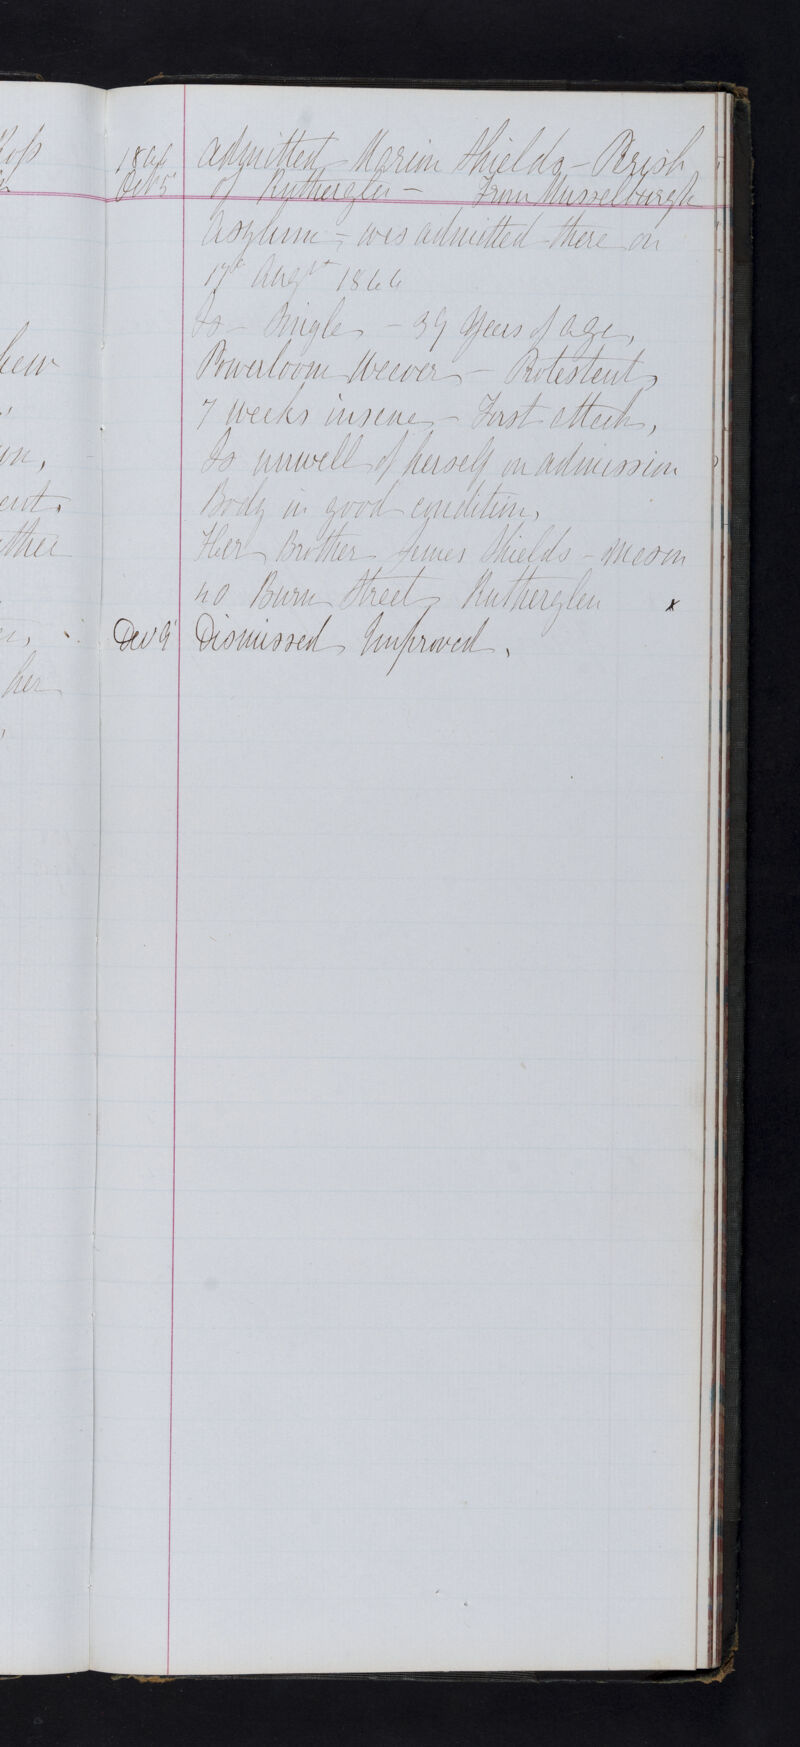 1866 Admitted Marion Shields - Parish
Oct 5 of Rutherglen - From Musselburgh
Asylum - was admitted there on
17th Augst 1866
Is - Single - 39 Years of age,
Powerloom Weaver - Protestant,
7 weeks insane - First attack,
Is unwell of herself on admission
Body in good condition,
Her Brother James Shields - Mason
40 Burn Street Rutherglen x
Dec 9 Dismissed Improved.